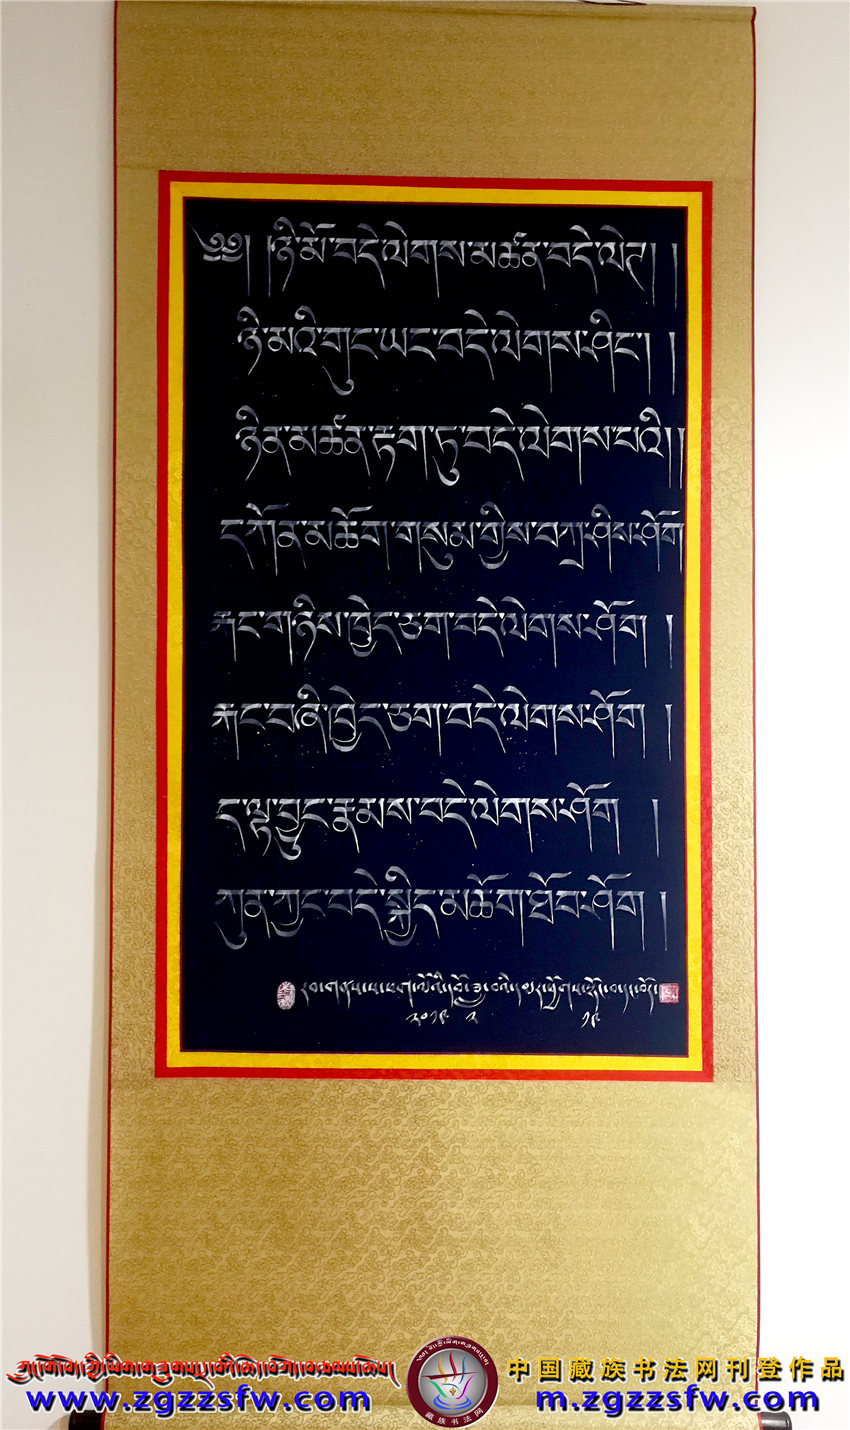 ༄༅། །ཉི་མོ་བདེ་ལེགས་མཚན་བདེ་ལེཊ། །
ཉི་མའི་གུང་ཡང་བདེ་ལེགས་ཤིང་། །
ཉིན་མཚན་རྟག་ཏུ་བདེ་ལེགས་པའི། །
དཀོན་མཆོག་གསུམ་གྱིས་བཀྲ་ཤིས་ཤོག
རྐང་གཉིས་ཁྱེད་ཅག་བདེ་ལེགས་ཤོག །
རྐང་བཞི་ཁྱེད་ཅག་བདེ་ལེགས་ཤོག །
ད་ལྟ་བྱུང་རྣམས་བདེ་ལེགས་ཤོག །
ཀུན་ཀྱང་བདེ་སྐྱིད་མཆོག་ཐོབ་ཤོག །
༢༠༡༩ ༢ ༡༩
中国藏族书法网刊登作品
www.zgzzsfw.com
m.zgzzsfw.com
藏族书法网